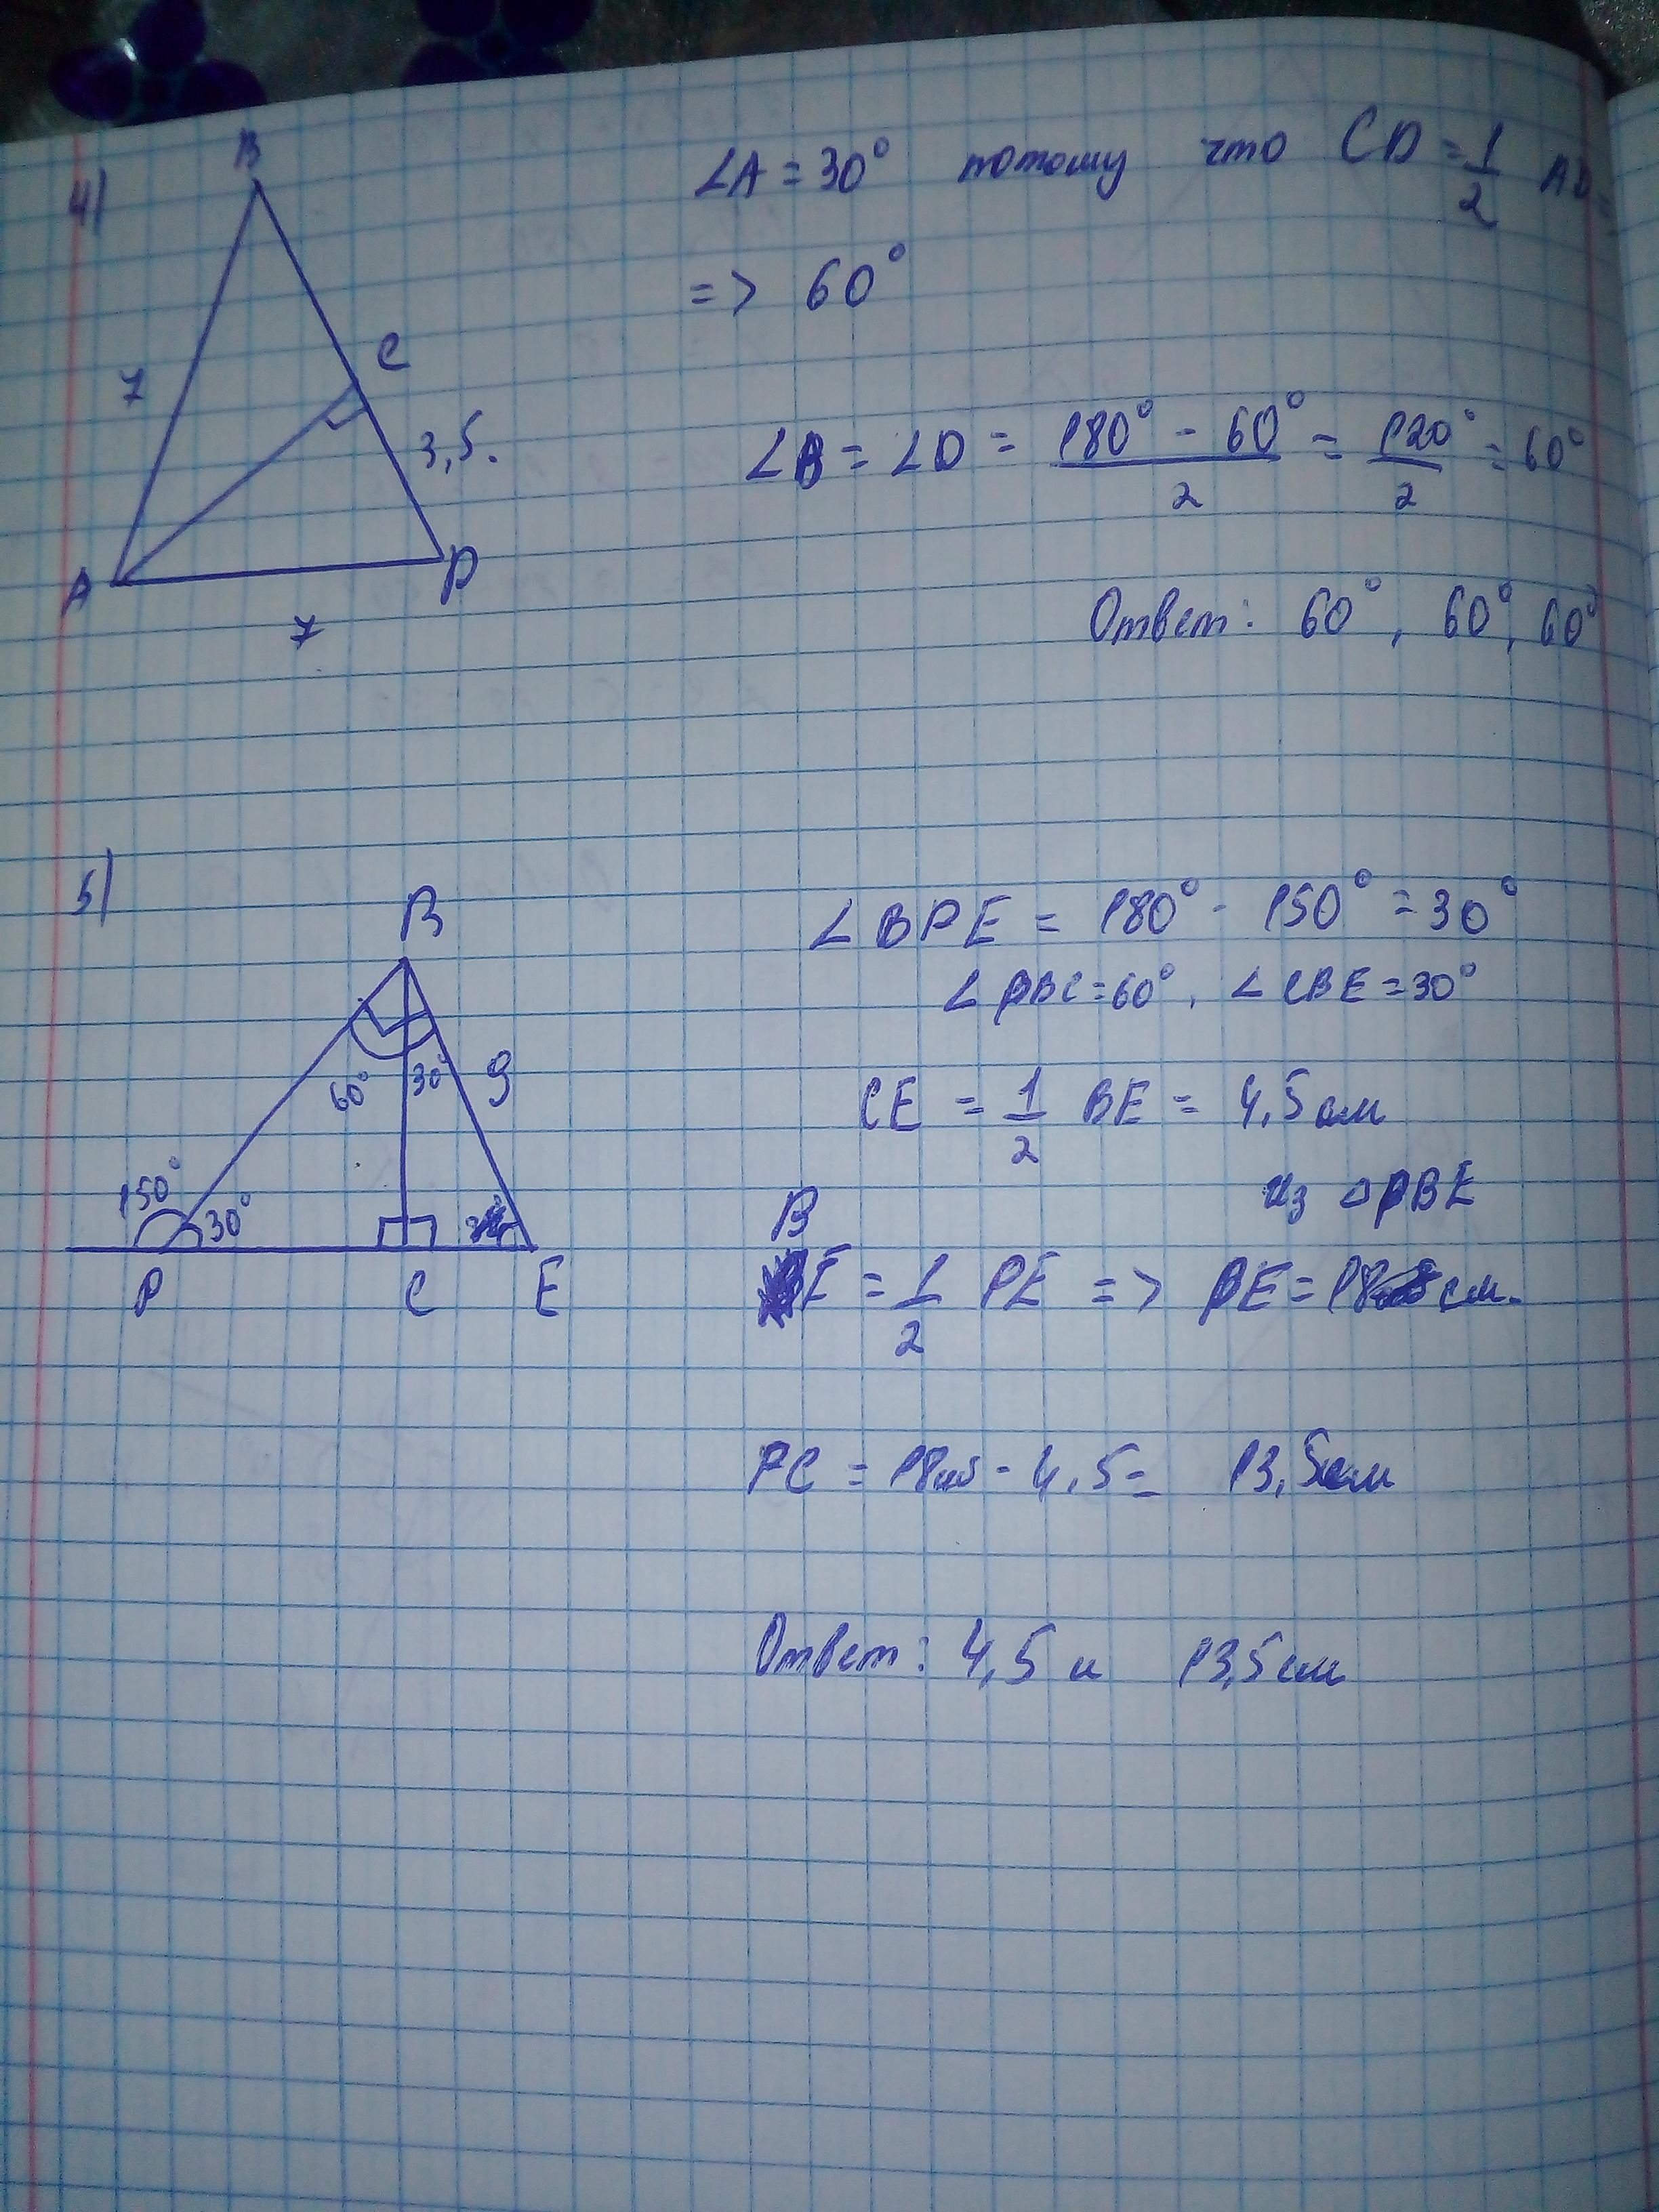 4)
B
C
7
3,5.
A
D
7
∠A = 30° потому что CD = 1/2 AD =
=> 60°
∠B = ∠D = (180° - 60°)/2 = 120°/2 = 60°
Ответ: 60°, 60°, 60°
5)
B
60° 30° 9
150° 30°
P C E
∠BPE = 180° - 150° = 30°
∠PBC = 60°, ∠CBE = 30°
CE = 1/2 BE = 4,5 см
из △PBE
BE = 1/2 PE => PE = 18 см.
PC = 18 - 4,5 = 13,5см
Ответ: 4,5 и 13,5 см